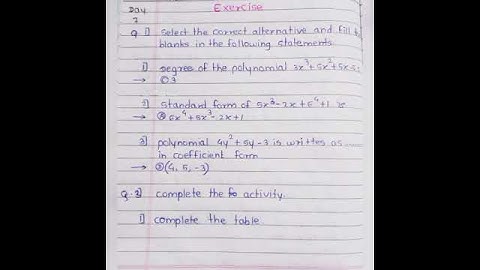 Day
Exercise
Q 1] select the correct alternative and fill
blanks in the following statements
1] degree of the polynomial 2x³+5x²+5x
→ ©3
2] standard form of 5x³-2x+6⁴+1
→ Ⓐ 6x⁴+5x³-2x+1
3] polynomial 4y²+5y-3 is writtes as ......
in coefficient form
→ (4, 5, -3)
Q.2] complete the activity
1] complete the table